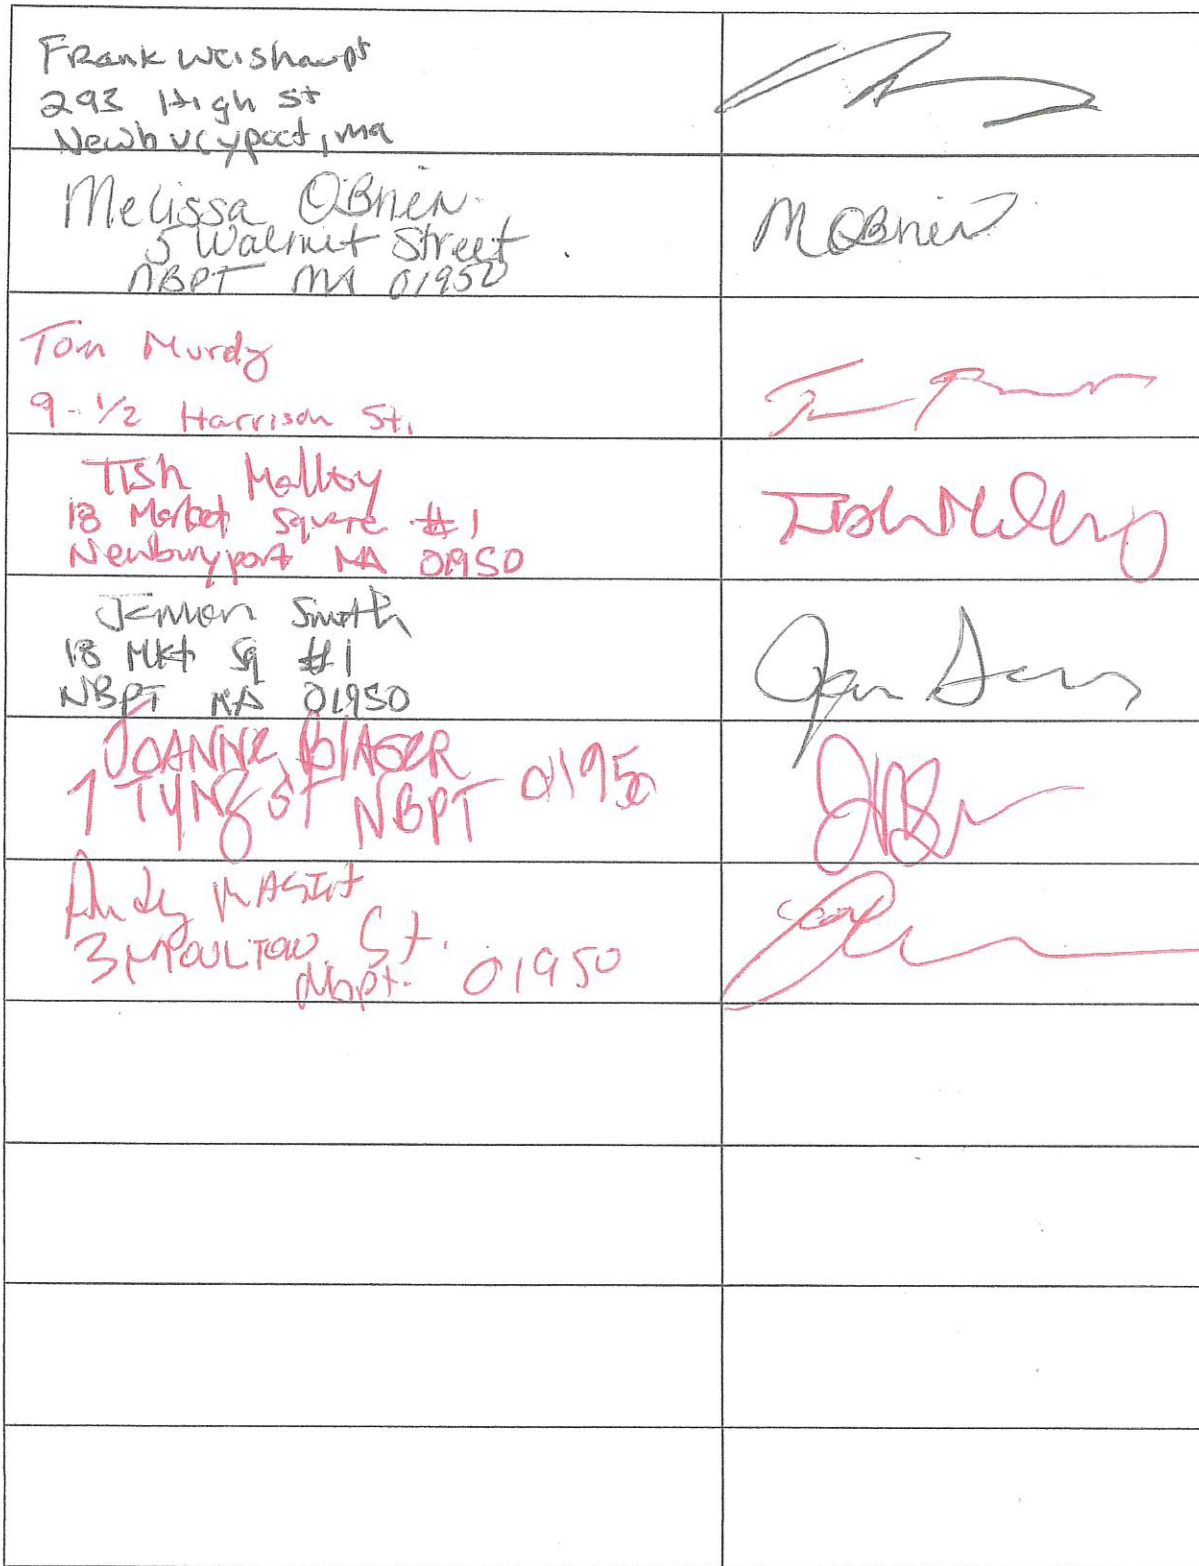 Frank Weishaupt
293 High St
Newburyport, ma
Melissa O'Brien
5 Walnut Street
NBPT MA 01950
M OBrien
Tom Murdy
9-1/2 Harrison St.
Tish Malloy
18 Market Square #1
Newburyport MA 01950
Tish Malloy
Smith
18 Mkt Sq #1
NBPT MA 01950
JOANNE
7 TYNG ST NBPT 01950
Andy
3 MOULTON St.
Nbpt. 01950